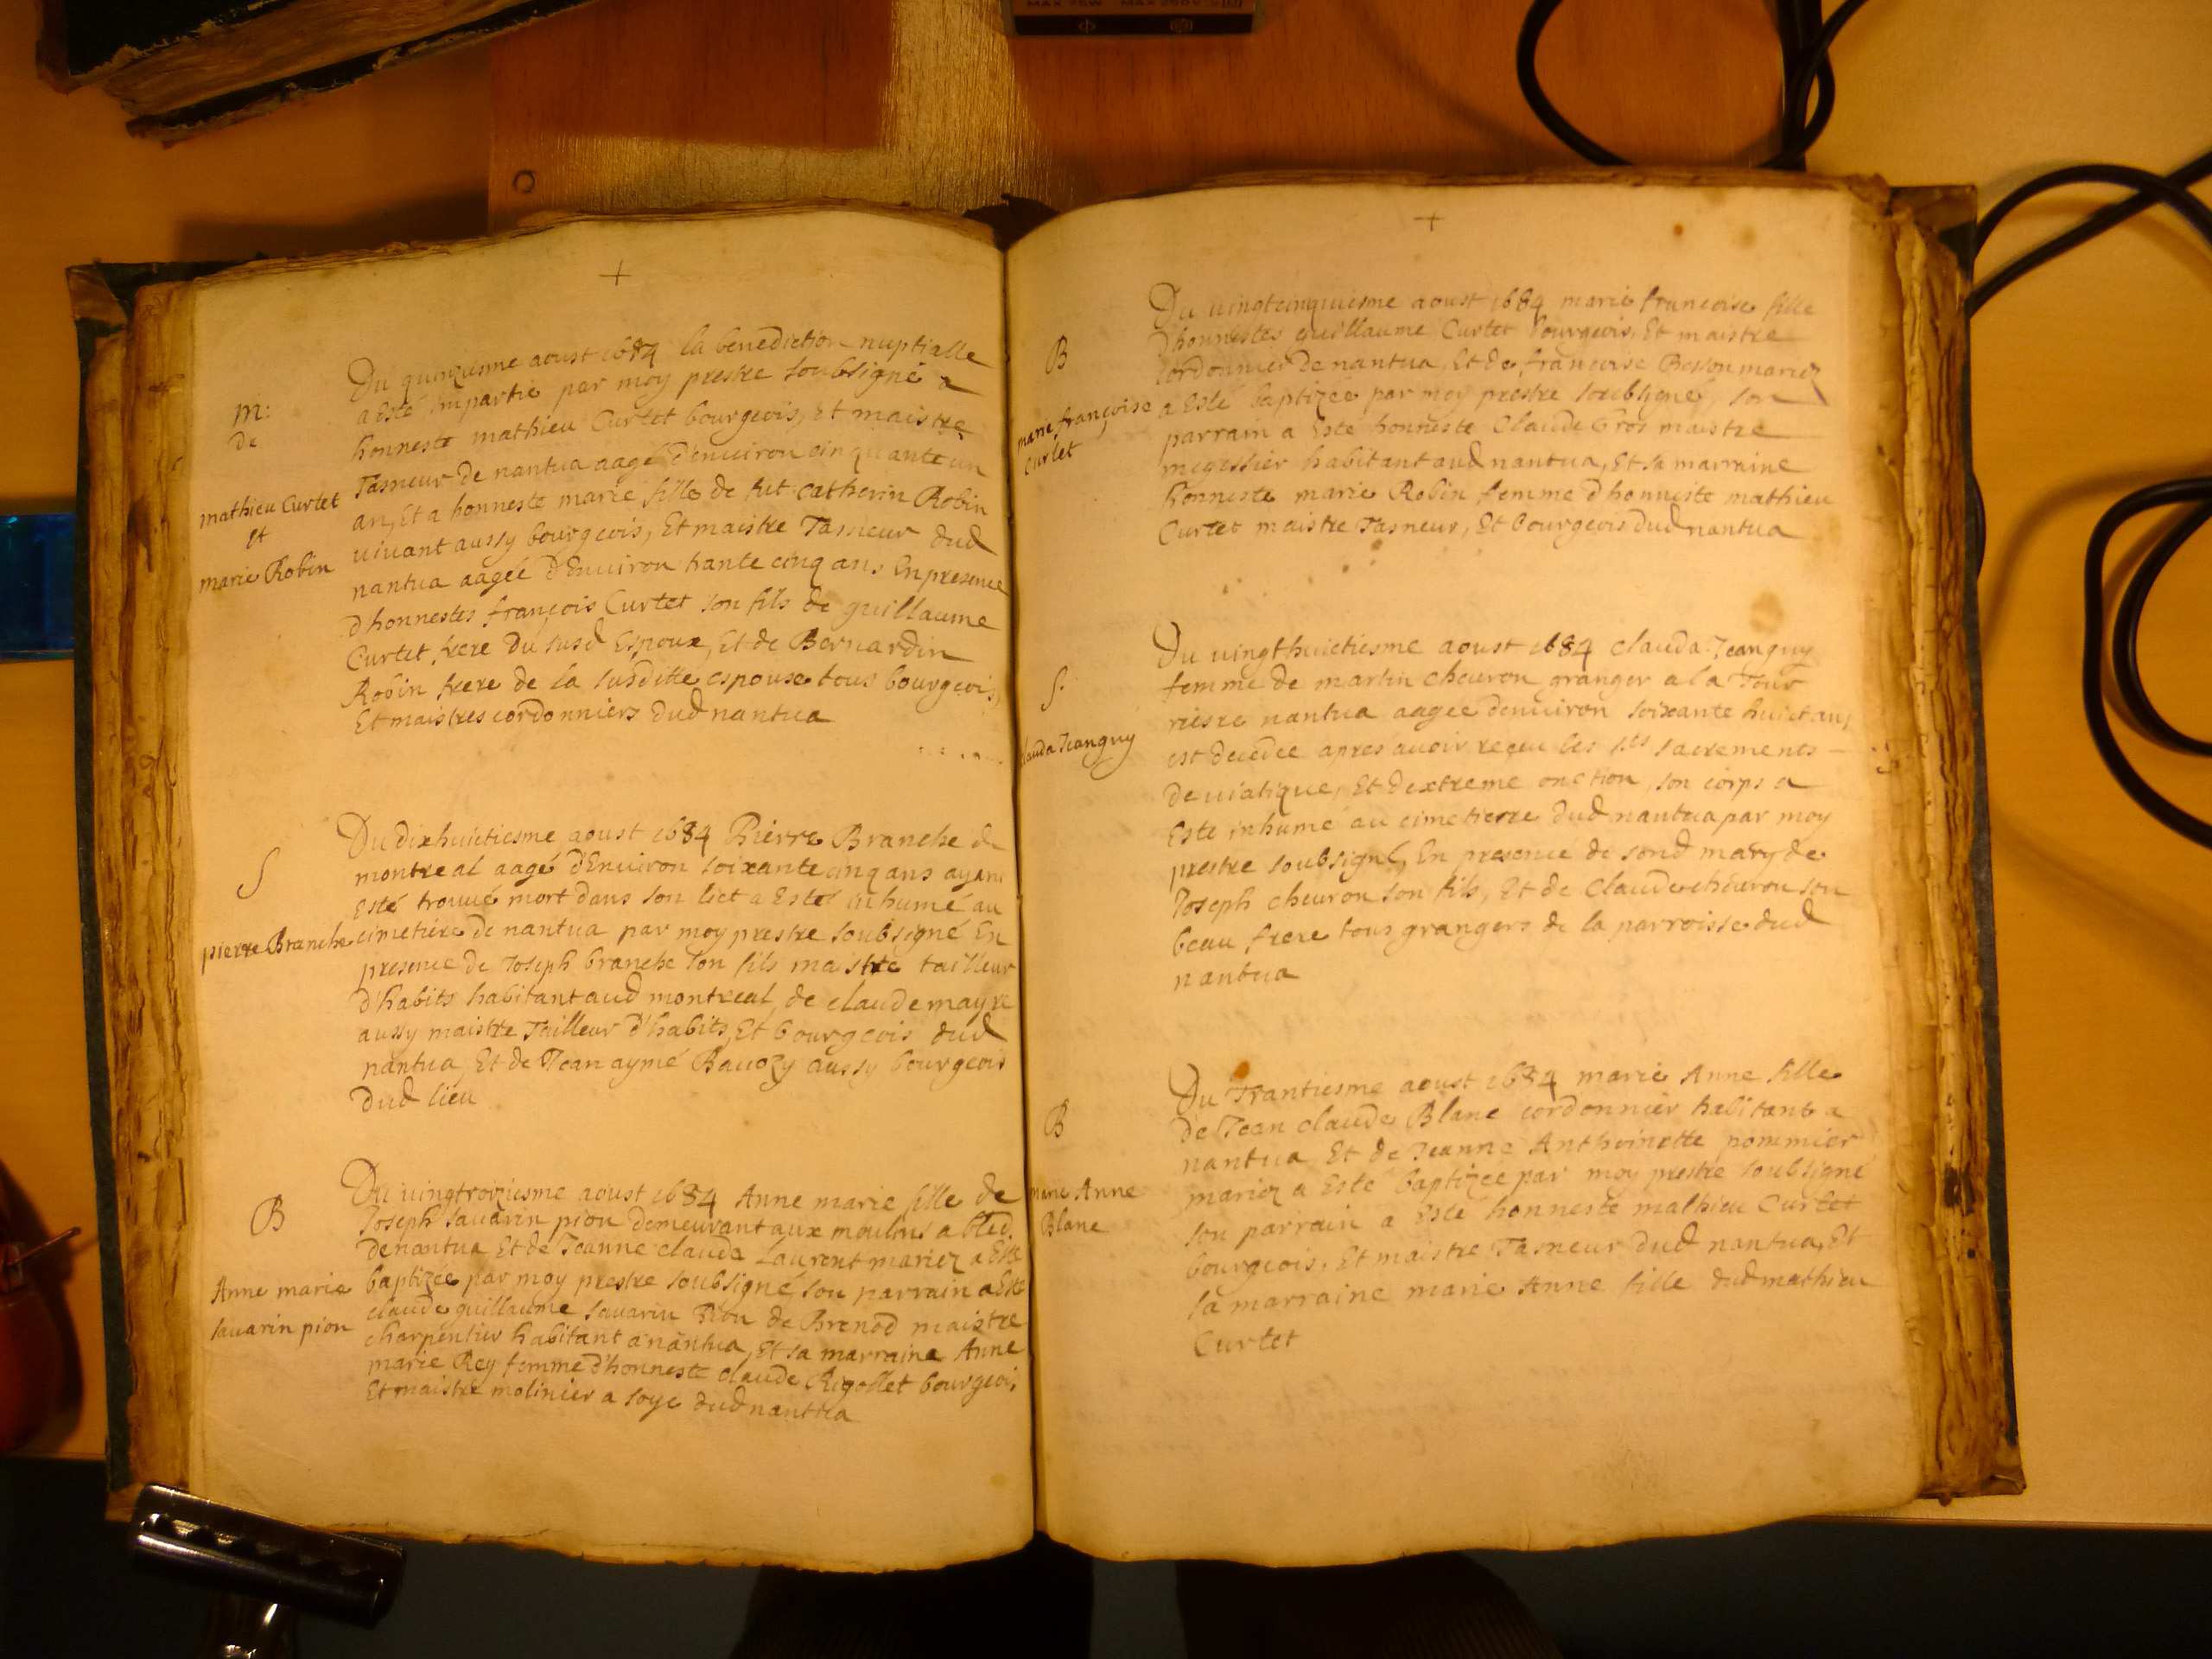 MAX 75W MAX 250V
+
m:
de
mathieu Curtet
et
marie Robin
Du quinziesme aoust 1684 la benediction nuptialle
a Esté impartie par moy prestre soubsigné a
honneste mathieu Curtet bourgeois, Et maistre
Tasneur de nantua aagé d'enuiron cinquante un
an, Et a honneste marie fille de fut Catherin Robin
uiuant aussy bourgeois, Et maistre Tasneur dud
nantua aagée d'Enuiron trante cinq ans En presence
d'honnestes françois Curtet son fils de guillaume
Curtet frere du susd Espoux, Et de Bernardin
Robin frere de la susditte espouse tous bourgeois,
Et maistres cordonniers dud nantua
S
pierre Branche
Du dixhuictiesme aoust 1684 Pierre Branche de
montreal aagé d'Enuiron soixante cinq ans ayant
Esté trouué mort dans son lict a Esté inhumé au
cimetiere de nantua par moy prestre soubsigné En
presence de Joseph branche son fils maistre tailleur
d'habits habitant aud montreal, de claude mayre
aussy maistre Tailleur d'habits, Et bourgeois dud
nantua, Et de Jean aymé Bauozy aussy bourgeois
dud lieu
B
Anne marie
sauarin pion
Du uingtroiziesme aoust 1684 Anne marie fille de
Joseph sauarin pion demeurant aux moulins a bled
de nantua Et de Jeanne claude Laurent mariez a Esté
baptizée par moy prestre soubsigné son parrain a Esté
claude guillaume sauarin Pion de Brenod maistre
charpentier habitant a nantua, Et sa marraine Anne
marie Rey femme d'honneste claude Rigollet bourgeois,
Et maistre molinier a soye dud nantua
+
B
marie françoise
Curtet
Du uingtcinquiesme aoust 1684 marie francoise fille
d'honnestes guillaume Curtet bourgeois, Et maistre
cordonnier de nantua, Et de francoise Besson mariez
a Esté baptizée par moy prestre soubsigné, son
parrain a Este honneste Claude Gros maistre
megissier habitant aud nantua, Et sa marraine
honneste marie Robin femme d'honneste mathieu
Curtet maistre Tasneur, Et bourgeois dud nantua
S.
Clauda Jeanguy
Du uingthuictiesme aoust 1684 Clauda Jeanguy
femme de martin cheuron granger a la Tour
riesre nantua aagée denuiron soixante huict ans
est decedée apres auoir receu les sts sacrements
de uiatique, Et dextreme onction, son corps a
Este inhumé au cimetierre dud nantua par moy
prestre soubsigné, En presence de sond mary de
Joseph cheuron son fils, Et de Claude cheuron son
beau frere tous grangers de la parroisse dud
nantua
B
marie Anne
Blanc
Du Trantiesme aoust 1684 marie Anne fille
de Jean claude Blanc cordonnier habitant a
nantua Et de Jeanne Anthoinette pommier
mariez a Esté baptizée par moy prestre soubsigné
son parrain a Esté honneste mathieu Curtet
bourgeois, Et maistre Tasneur dud nantua, Et
sa marraine marie Anne fille dud mathieu
Curtet